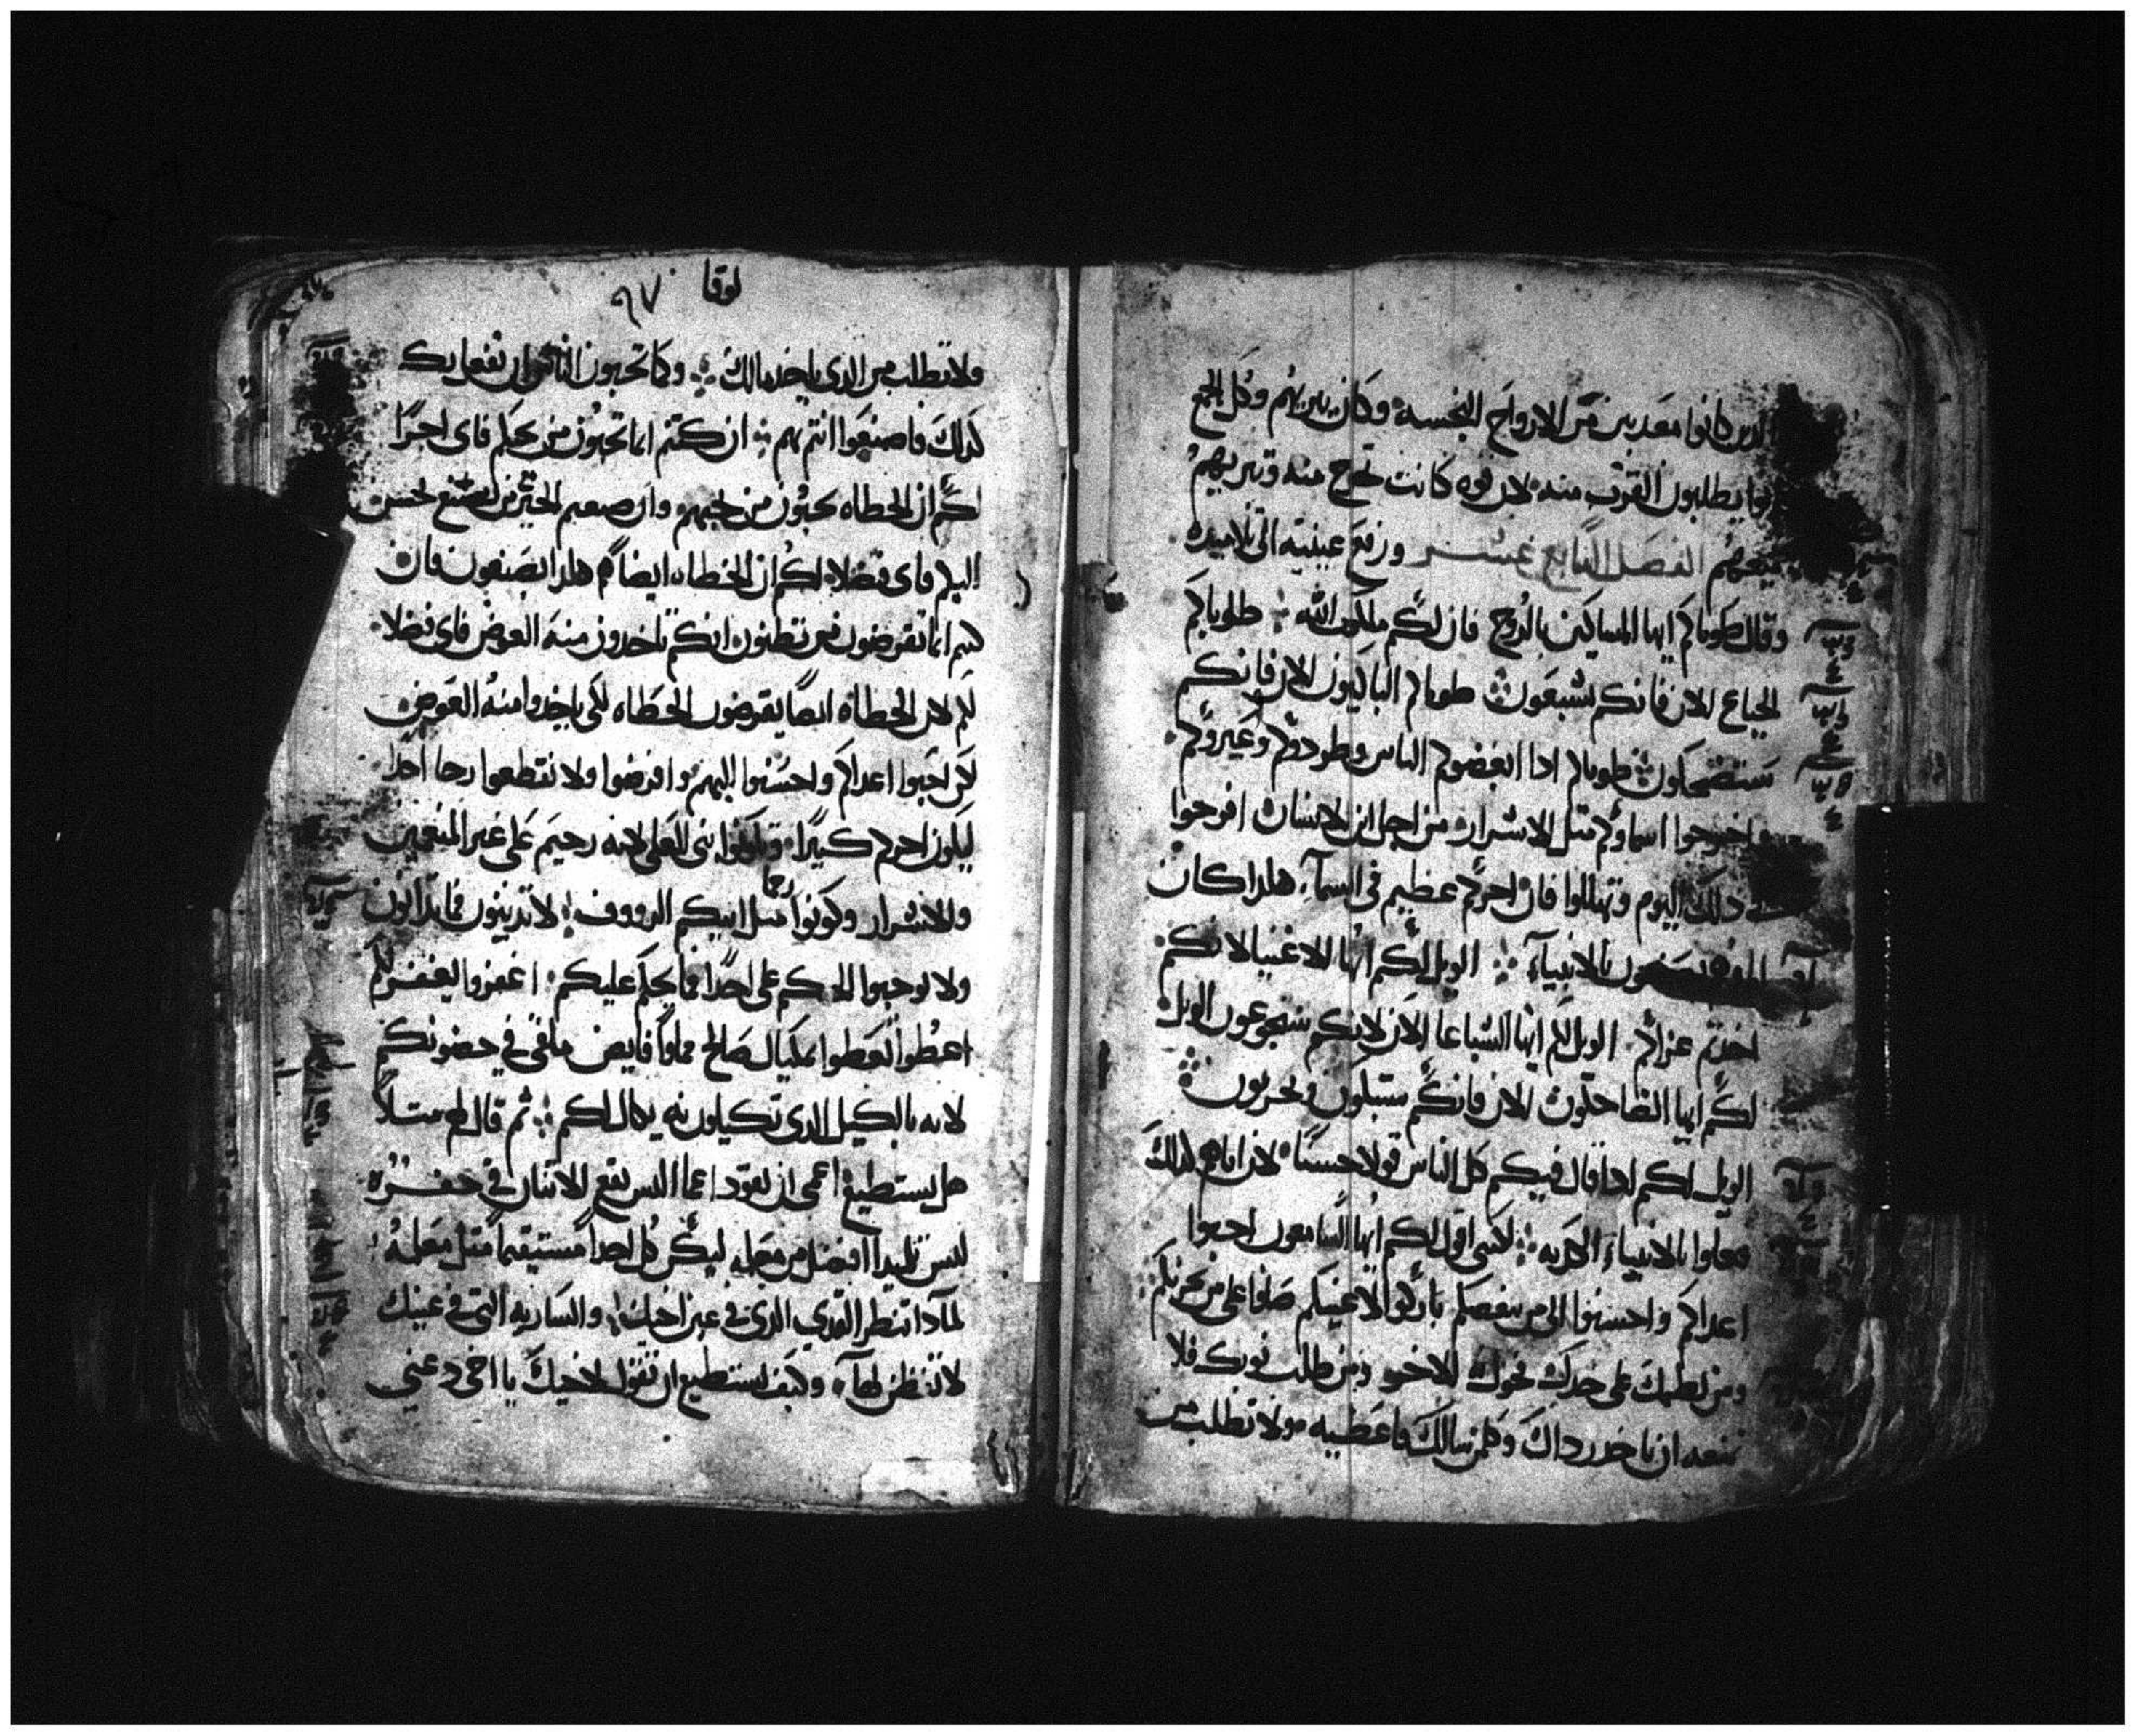 الدين كانوا معدبين من الارواح النجسه وكان يبريهم وكل الجمع
يطلبون القرب منه لان قوه كانت تخرج منه وتبريهم
الفصل الرابع عشر ورفع عينيه الى تلاميده
وقال طوباكم ايها المساكين بالروح فان لكم ملكوت الله طوباكم
الجياع الان فانكم تشبعون طوباكم الباكيون الان فانكم
ستضحكون طوباكم ادا ابغضوكم الناس وطردوكم وعيروكم
واخرجوا اسماوكم مثل الاشرار من اجل ابن الانسان افرحوا
دلك اليوم وتهللوا فان اجركم عظيم في السمآء هكدا كان
يصنعون بالانبيآء الويل لكم ايها الاغنيا لانكم
اخدتم عزاكم الويل لكم ايها الشباعا الان لانكم ستجوعون الويل
لكم ايها الضاحكون الان فانكم ستبكون وتحزنون
الويل لكم ادا قال فيكم كل الناس قولا حسنا لان اباهم كدلك
فعلوا بالانبياء الكدبه لكني اقول لكم ايها السامعون احبوا
اعداكم واحسنوا الى من يبغضكم باركوا لاعنيكم صلوا على من يحزنكم
ومن لطمك على خدك فحول الاخر ومن طلب توبك فلا
تمنعه ان ياخد رداك وكل من سالك فاعطيه ولا تطلب من
لوقا ٩٧
ولا تطلب من الدي ياخد مالك وكما تحبون الناس ان تفعل بكم
كدلك فاصنعوا انتم بهم ان كنتم انما تحبون من يحبكم فاي اجرا
لكم ان الخطاه يحبون من يحبهم وان صنعتم الخير من يصنع لحسن
اليكم فاي فضلا لكم ان الخطاه ايضا هكدا يصنعون فان
كنتم انما تقرضون من تظنون انكم تاخدون منه العوض فاي فضلا
لكم لان الخطاة ايضا يقرضون الخطاه لكي ياخدوا منه العوض
لكن احبوا اعداكم واحسنوا اليهم واقرضوا ولا تقطعوا رجا احدا
ليكون اجركم كبيرا وتكونوا بني العلي لانه رحيم على غير المنعمين
والاشرار وكونوا رحما مثل ابيكم الرووف لا تدينون فما تدانون
ولا توجبوا الحكم على احدا فما يحكم عليكم اغفروا يغفر لكم
اعطوا تعطوا بمكيال صالح مملوا فايض ملقى في حضونكم
لانه بالكيل الدي تكيلون به يكال لكم ثم قال لهم مثلا
هل يستطيع اعمى ان يقود اعما اليس يقع الاتنان في حفره
ليس تلميدا افضل من معلمه ليكن كل احدا مستقيما مثل معلمه
لمادا تنظر القدي الدي في عين اخيك والساريه التي في عينك
لا تنظر لها وكيف تستطيع ان تقول لاخيك يا اخي دعني